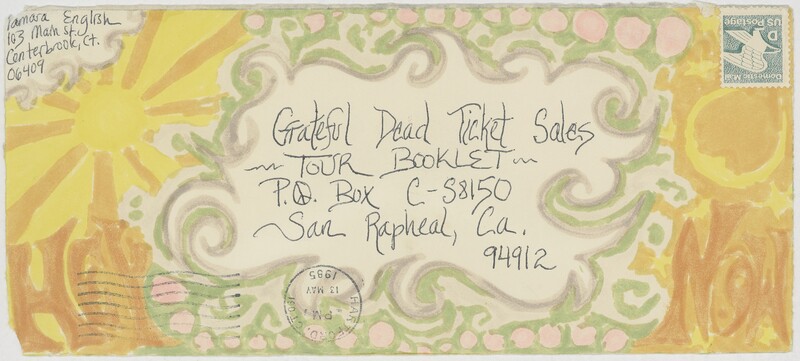 Tamara English
103 Main St.
Centerbrook, Ct.
06409
D
US Postage
Domestic Mail
Grateful Dead Ticket Sales
~ TOUR BOOKLET ~
P.O. Box C-S8150
~San Rapheal, Ca.
94912
HARTFORD, CT
PM
13 MAY
1985